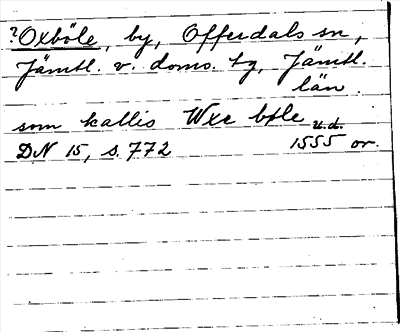 ?Oxböle, by, Offerdals sn,
Jämtl. v. doms. tg, Jämtl.
län.
som kallis Wxe bøle
u.d.
DN 15, s. 772 1555 or.